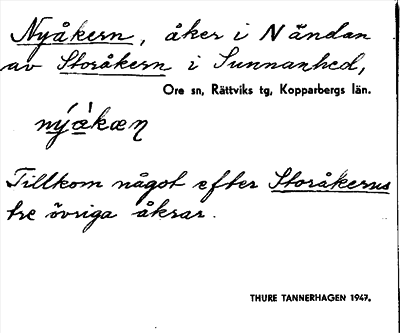 Nyåkern, åker i N ändan
av Storåkern i Sunnanhed,
Ore sn, Rättviks tg, Kopparbergs län.
Tillkom något efter Storåkerns
tre övriga åkrar.
THURE TANNERHAGEN 1947.